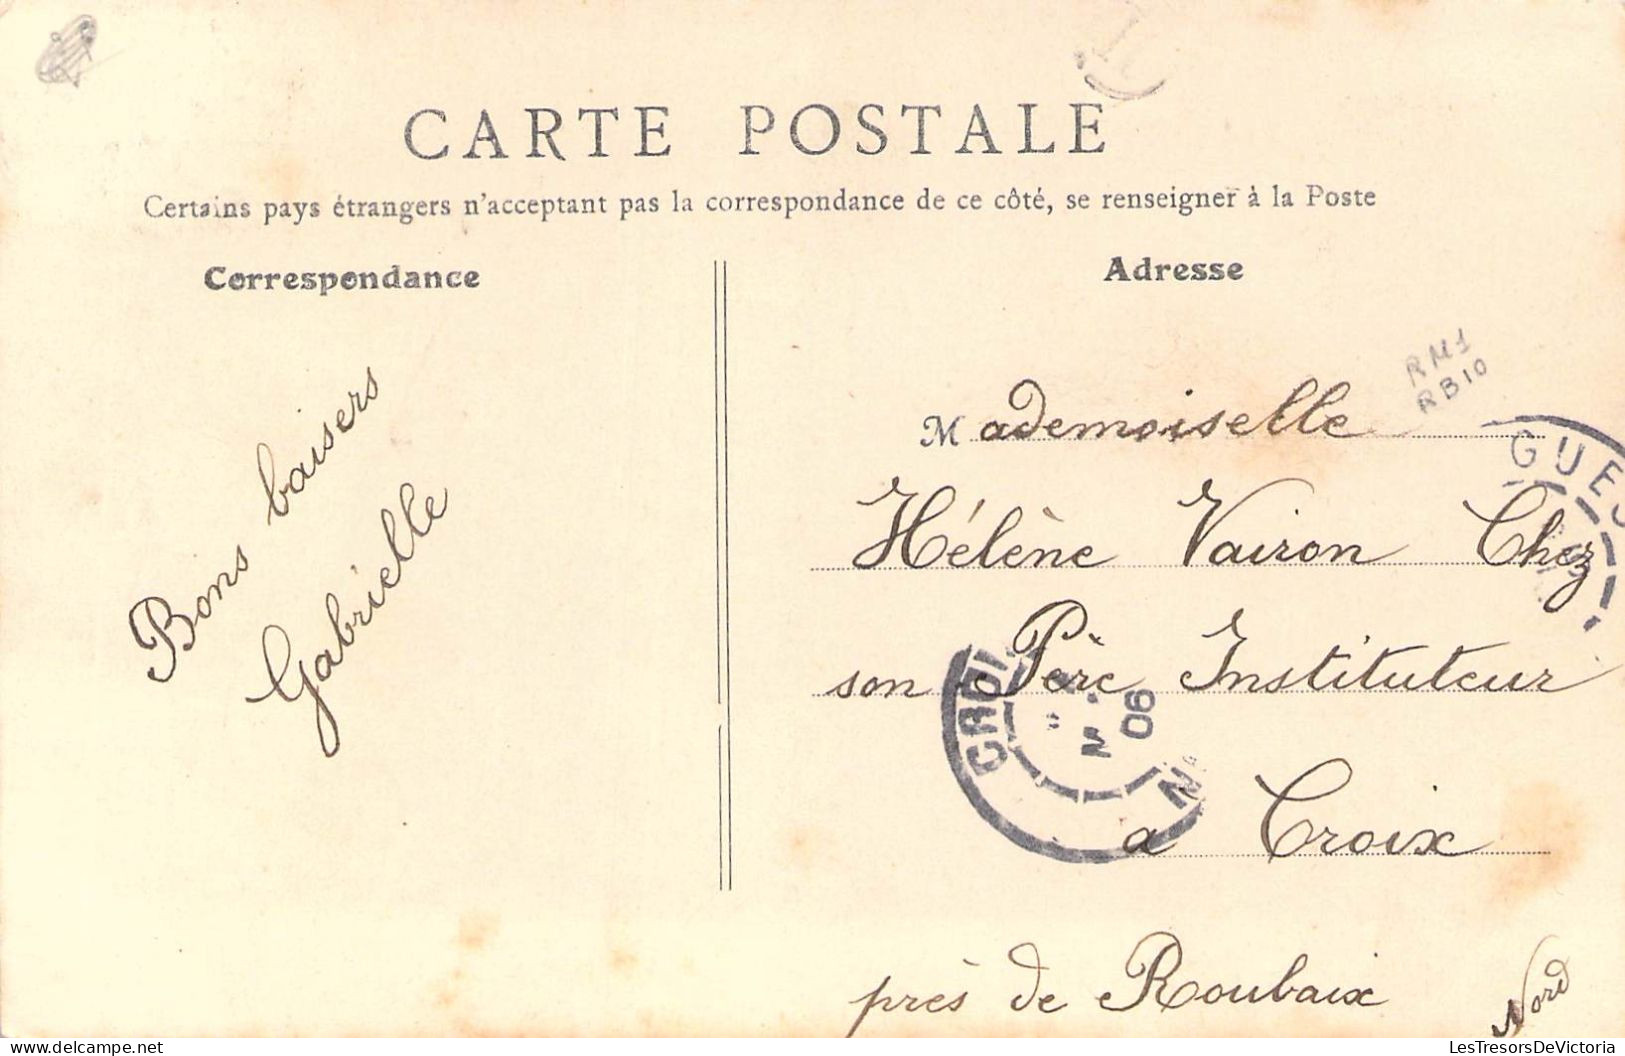 CARTE POSTALE
Certains pays étrangers n'acceptant pas la correspondance de ce côté, se renseigner à la Poste
Correspondance
Adresse
Bons baisers
Gabrielle
RM1
RB10
Mademoiselle
Hélène Vairon Chez
son Père Instituteur
a Croix
près de Roubaix
Nord
GUES
CROI
06
LesTresorsDeVictoria